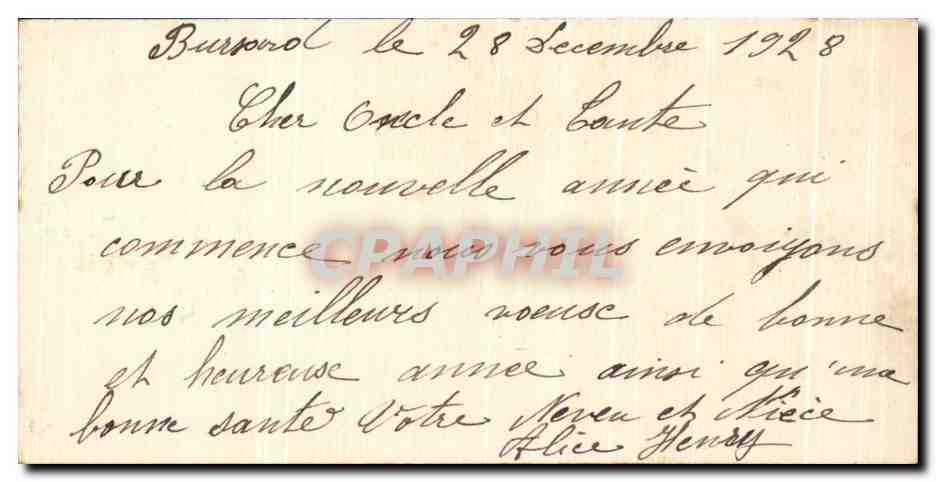 Bursard le 28 Decembre 1928
Cher Oncle et Tante
Pour la nouvelle année qui
commence nous vous envoiyons
CPRAPHIL
nos meilleurs voeux de bonne
et heureuse annee ainsi qu'une
bonne santé Votre Neveu et Nièce
Alice Henry